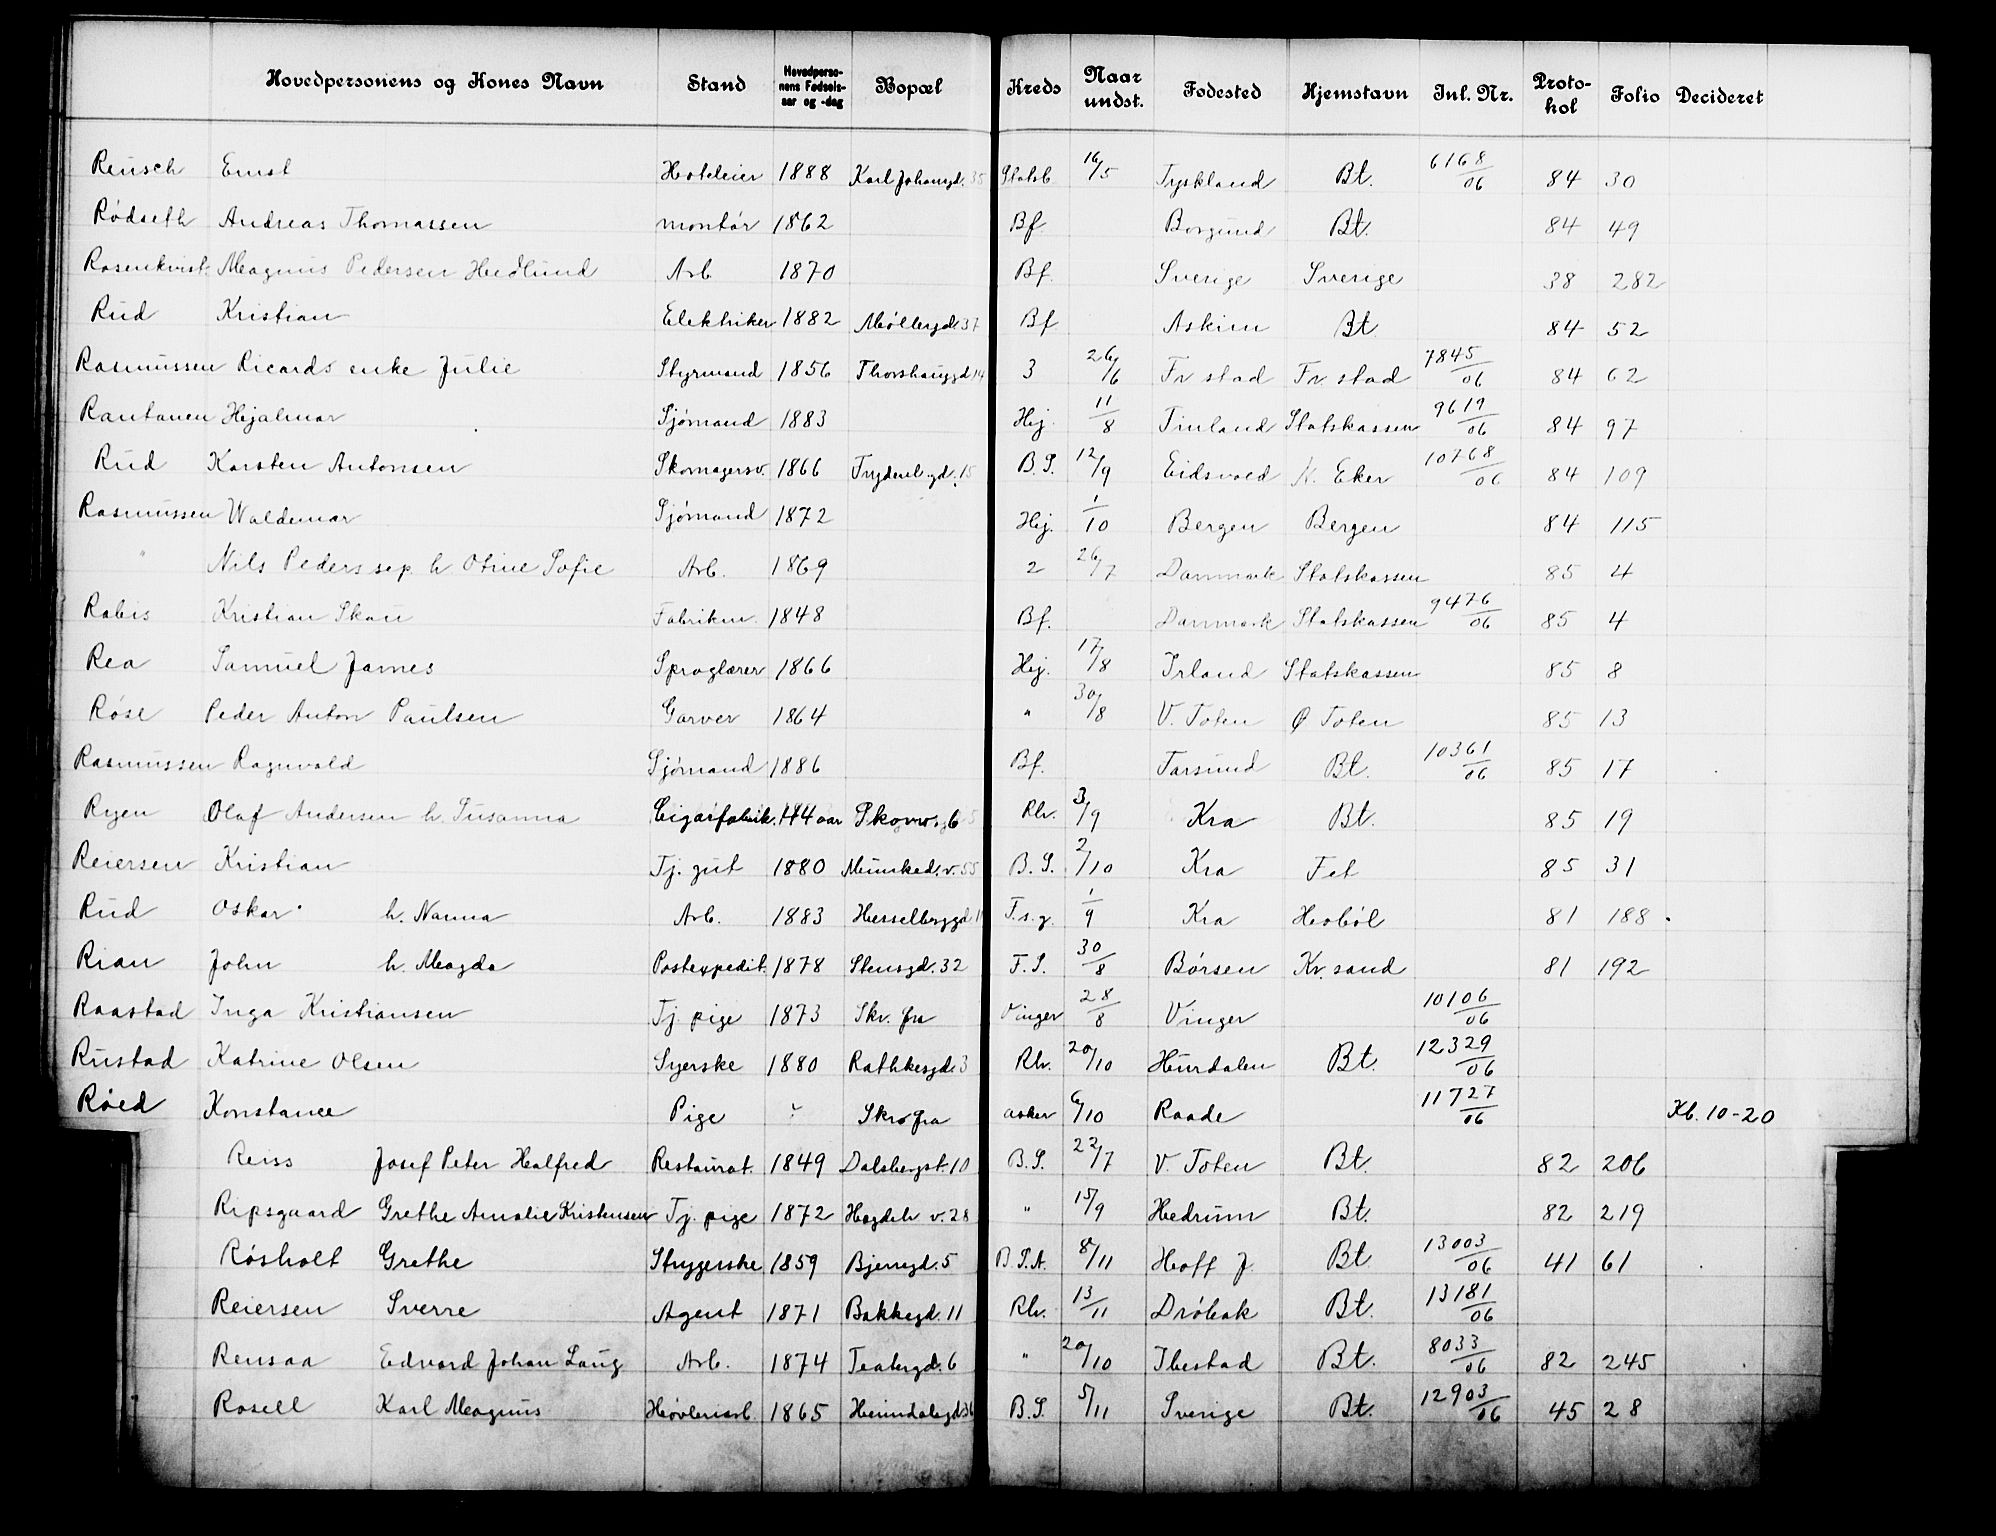 Hovedpersonens og Kones Navn | Stand | Hovedpersonens Fødselsaar og -dag | Bopæl | Kreds | Naar undst. | Fødested | Hjemstavn | Inl. Nr. | Protokol | Folio | Decideret
Reusch Ernst | Hoteleier | 1888 | Karl Johansgd. 35 | Statsb | 16/5 | Tyskland | Bt. | 6168/06 | 84 | 30
Rødseth Andreas Thomassen | montør | 1862 | Bf. | Borgund | Bt. | 84 | 49
Rosenkvist Magnus Pedersen Hedlund | Arb. | 1870 | Bf. | Sverige | Sverige | 38 | 282
Rud Kristian | Elektriker | 1882 | Møllergd. 37 | Bf | Askim | Bt. | 84 | 52
Rasmussen Ricards enke Julie | Styrmand | 1856 | Thorshauggd 14 | 3 | 26/6 | Fr stad | Fr. stad | 7845/06 | 84 | 62
Rautanen Hjalmar | Sjømand | 1883 | Hej. | 11/8 | Finland | Statskassen | 9619/06 | 84 | 97
Rud Karsten Antonsen | Skomagersv. | 1866 | Frydenbgd. 15 | B.S. | 12/9 | Eidsvold | N. Eker | 10768/06 | 84 | 109
Rasmussen Waldemar | Sjømand | 1872 | Hej. | 1/10 | Bergen | Bergen | 84 | 115
" Nils Peders sep. h. Otine Sofie | Arb. | 1869 | 2 | 26/7 | Danmark | Statskassen | 85 | 4
Rabis Kristian Skau | Fabrikm. | 1848 | Bf. | Danmark | Statskassen | 9476/06 | 85 | 4
Rea Samuel James | Sproglærer | 1866 | Hej. | 17/8 | Irland | Statskassen | 85 | 8
Røse Peder Anton Paulsen | Garver | 1864 | " | 30/8 | V. Toten | Ø Toten | 85 | 13
Rasmussen Ragnvald | Sjømand | 1886 | Bf. | Farsund | Bt. | 10361/06 | 85 | 17
Ryen Olaf Andersen h. Susanna | Cigarfabrik. | 44 aar | Skovv. 6 | Rh. | 3/9 | Kra | Bt. | 85 | 19
Reiersen Kristian | Tj. gut | 1880 | Munked. v. 55 | B.S. | 2/10 | Kra | Fet | 85 | 31
Rud Oskar h. Nanna | Arb. | 1883 | Hesselbggd. 11 | F.s.g. | 1/9 | Kra | Hobøl | 81 | 188
Rian John h. Magda | Postexpedit. | 1878 | Stensgd. 32 | F.S. | 30/8 | Børsen | Kr. sand | 81 | 192
Raastad Inga Kristiansen | Tj. pige | 1873 | Skr. fra | Vinger | 28/8 | Vinger | 10106/06
Rustad Katrine Olsen | Syerske | 1880 | Rathkesgd. 3 | Rh. | 20/10 | Hurdalen | Bt. | 12329/06
Røed Konstance | Pige | ? | Skr. fra | asker | 6/10 | Raade | 11727/06 | Kb. 10-20
Reiss Josef Peter Halfred | Restaurat. | 1849 | Dalsbergst. 10 | B.S. | 22/7 | V. Toten | Bt. | 82 | 206
Ripsgaard Grethe Amalie Kristensen | Tj. pige | 1872 | Hegdeh v. 28 | " | 15/9 | Hedrum | Bt. | 82 | 219
Røsholt Grethe | Strygerske | 1859 | Bjerregd. 5 | B.S.A. | 8/11 | Hoff J. | Bt. | 13003/06 | 41 | 61
Reiersen Sverre | Agent | 1871 | Bakkegd. 11 | Rh. | 13/11 | Drøbak | Bt. | 13181/06
Rensaa Edvard Johan Laug | Arb. | 1874 | Teatergd. 6 | " | 20/10 | Ibestad | Bt. | 8033/06 | 82 | 245
Rosell Karl Magnus | Høvleriarb | 1865 | Heimdalsgd 36 | B.S. | 5/11 | Sverige | Bt. | 12903/06 | 45 | 28